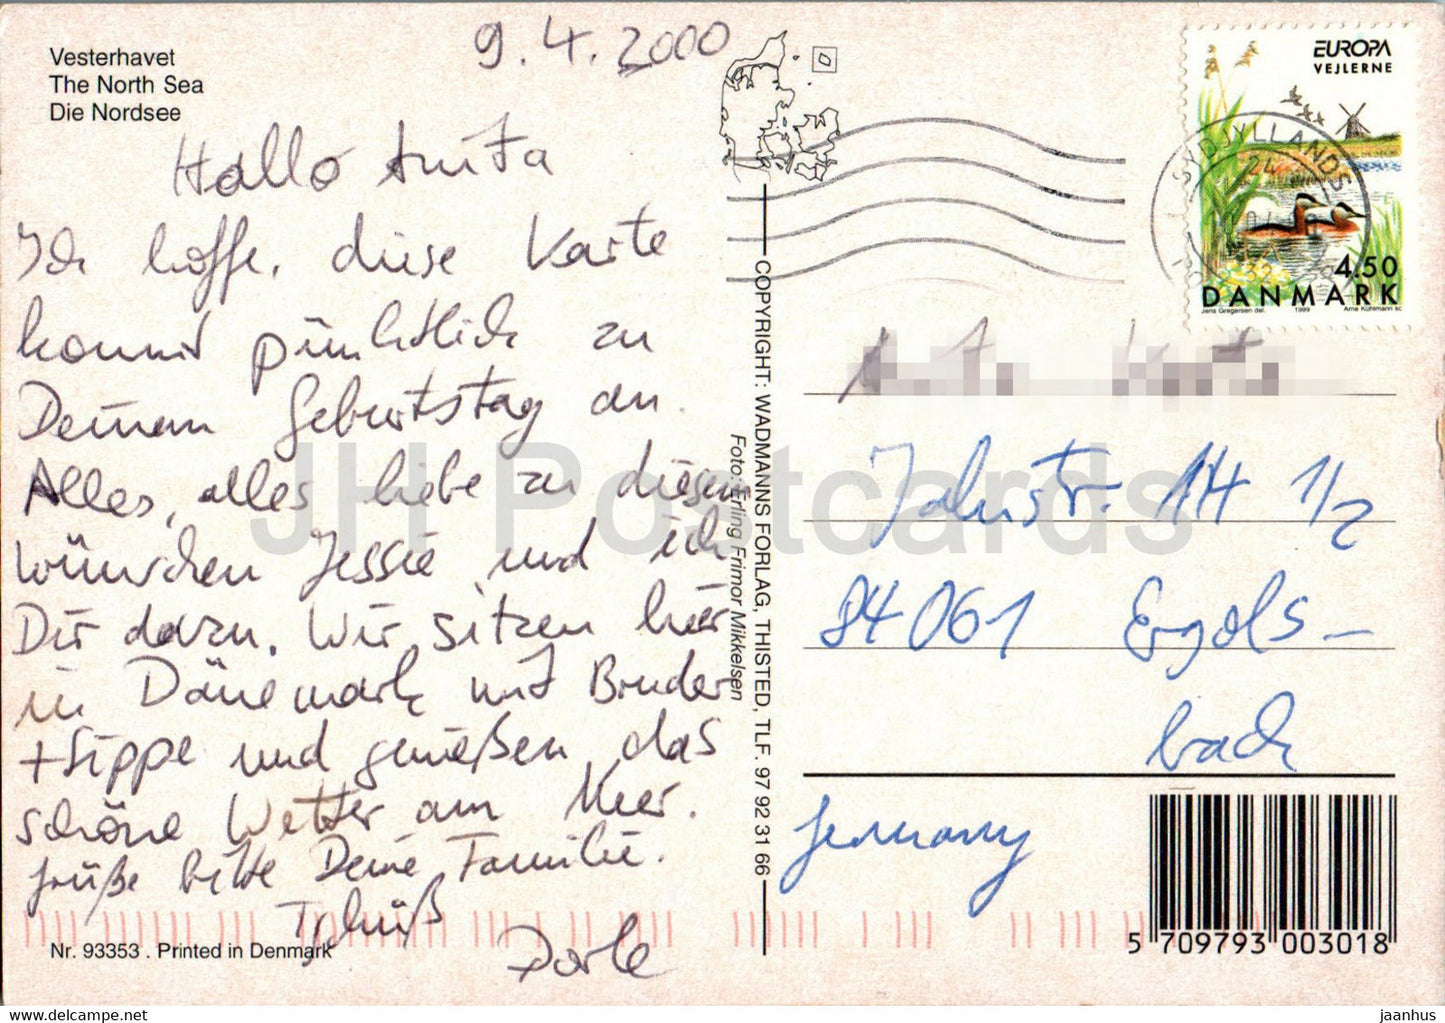 Vesterhavet
The North Sea
Die Nordsee
9.4.2000
Hallo Anita
Ich hoffe, diese Karte
kommt pünktlich zu
Deinem Geburtstag an.
Alles, alles liebe zu diesem
wünschen Jessie und ich
Dir dazu. Wir sitzen hier
in Dänemark mit Bruder
+ Sippe und genießen das
schöne Wetter am Meer.
Grüße bitte Deine Familie.
Tschüß
Dorle
Nr. 93353 . Printed in Denmark
COPYRIGHT: WADMANNS FORLAG, THISTED, TLF. 97 92 31 66
Foto: Erling Frimor Mikkelsen
EUROPA
VEJLERNE
4.50
DANMARK
Jens Gregersen del. 1999 Arne Kühlmann sc
SYDJYLLANDS
24
Jahnstr. 14 1/2
84061 Ergols-
bach
Germany
5 709793 003018
JH Postcards
www.delcampe.net
jaanhus